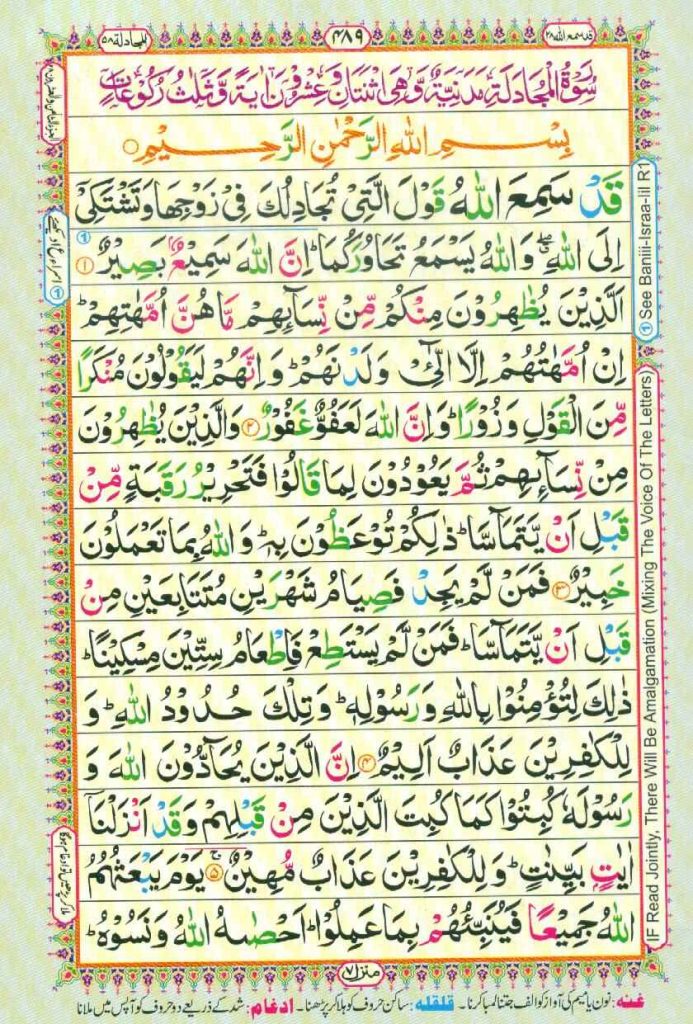 قد سمع الله ۲۸
۴۸۹
المجادلة ۵۸
سُوْرَةُ الْمُجَادَلَةِ مَدَنِيَّةٌ وَّهِيَ اثْنَتَانِ وَعِشْرُوْنَ اٰيَةً وَّثَلٰثُ رُكُوْعَاتٍ
بِسْمِ اللّٰهِ الرَّحْمٰنِ الرَّحِيْمِ
قَدْ سَمِعَ اللّٰهُ قَوْلَ الَّتِيْ تُجَادِلُكَ فِيْ زَوْجِهَا وَتَشْتَكِيْٓ
اِلَى اللّٰهِ ۖ وَاللّٰهُ يَسْمَعُ تَحَاوُرَكُمَا ؕ اِنَّ اللّٰهَ سَمِيْعٌۢ بَصِيْرٌ ۱
اَلَّذِيْنَ يُظٰهِرُوْنَ مِنْكُمْ مِّنْ نِّسَآئِهِمْ مَّا هُنَّ اُمَّهٰتِهِمْ ؕ
اِنْ اُمَّهٰتُهُمْ اِلَّا الّٰٓـِٔيْ وَلَدْنَهُمْ ؕ وَاِنَّهُمْ لَيَقُوْلُوْنَ مُنْكَرًا
مِّنَ الْقَوْلِ وَزُوْرًا ؕ وَاِنَّ اللّٰهَ لَعَفُوٌّ غَفُوْرٌ ۲ وَالَّذِيْنَ يُظٰهِرُوْنَ
مِنْ نِّسَآئِهِمْ ثُمَّ يَعُوْدُوْنَ لِمَا قَالُوْا فَتَحْرِيْرُ رَقَبَةٍ مِّنْ
قَبْلِ اَنْ يَّتَمَآسَّا ؕ ذٰلِكُمْ تُوْعَظُوْنَ بِهٖ ؕ وَاللّٰهُ بِمَا تَعْمَلُوْنَ
خَبِيْرٌ ۳ فَمَنْ لَّمْ يَجِدْ فَصِيَامُ شَهْرَيْنِ مُتَتَابِعَيْنِ مِنْ
قَبْلِ اَنْ يَّتَمَآسَّا ؕ فَمَنْ لَّمْ يَسْتَطِعْ فَاِطْعَامُ سِتِّيْنَ مِسْكِيْنًا ؕ
ذٰلِكَ لِتُؤْمِنُوْا بِاللّٰهِ وَرَسُوْلِهٖ ؕ وَتِلْكَ حُدُوْدُ اللّٰهِ ؕ وَ
لِلْكٰفِرِيْنَ عَذَابٌ اَلِيْمٌ ۴ اِنَّ الَّذِيْنَ يُحَآدُّوْنَ اللّٰهَ وَ
رَسُوْلَهٗ كُبِتُوْا كَمَا كُبِتَ الَّذِيْنَ مِنْ قَبْلِهِمْ وَقَدْ اَنْزَلْنَآ
اٰيٰتٍۭ بَيِّنٰتٍ ؕ وَلِلْكٰفِرِيْنَ عَذَابٌ مُّهِيْنٌ ۵ يَوْمَ يَبْعَثُهُمُ
اللّٰهُ جَمِيْعًا فَيُنَبِّئُهُمْ بِمَا عَمِلُوْا ؕ اَحْصٰىهُ اللّٰهُ وَنَسُوْهُ ؕ
① See Baniii-Israa-Iil R1
IF Read Jointly, There Will Be Amalgamation (Mixing The Voice Of The Letters)
ملا کر پڑھیں تو ادغام ہوگا
منزل ۷
غنہ: نون یا میم کی آواز کو الف جتنا لمبا کرنا۔ قلقلہ: ساکن حروف کو ہلا کر پڑھنا۔ ادغام: شد کے ذریعے دو حروف کو آپس میں ملانا